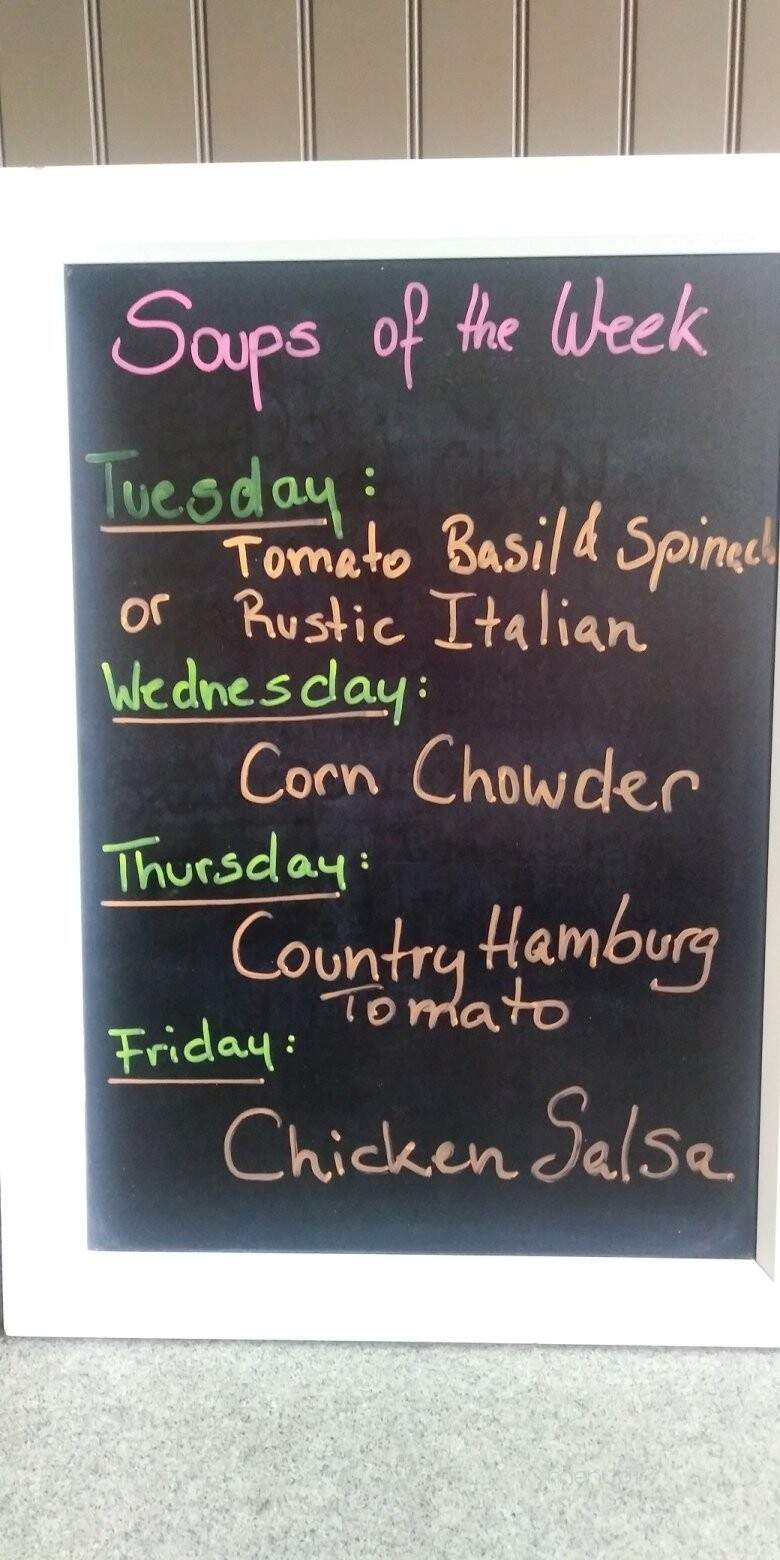 Soups of the Week
Tuesday:
Tomato Basil & Spinach
or Rustic Italian
Wednesday:
Corn Chowder
Thursday:
Country Hamburg
Tomato
Friday:
Chicken Salsa